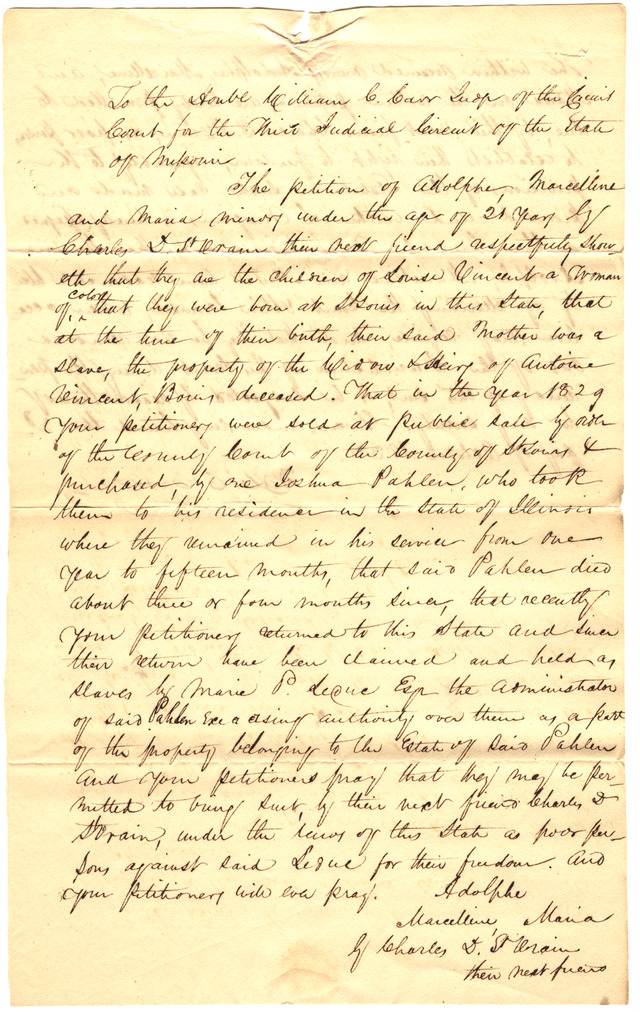 To the Honble William C. Carr Judge of the Circuit
Court for the Third Judicial Circuit of the State
of Missouri
The petition of Adolphe, Marcelline
and Maria minors under the age of 21 Years by
Charles D. St Vrain their next friend respectfully show-
eth that they are the children of Louise Vincent a Woman
of color, that they were born at St Louis in this State, that
at the time of their birth, their said Mother was a
slave, the property of the Widow & Heirs of Antoine
Vincent, Bouis deceased. That in the year 1829
Your petitioners were sold at public sale by order
of the County Court of the County of St Louis &
purchased by one Joshua Pahlen, who took
them to his residence in the State of Illinois
where they remained in his service from one
year to fifteen months, that said Pahlen died
about three or four months since, that recently
your petitioners returned to this State and since
their return have been claimed and held as
slaves by Marie P. Leduc Esqr the administrator
of said Pahlen Exeacising authority over them as a part
of the property belonging to the Estate of said Pahlen
And your petitioners pray that they may be per-
mitted to bring suit, by their next friend Charles D
St Vrain, under the laws of this State as poor per-
sons against said Leduc for their freedom. And
your petitioners will ever pray. Adolphe
Marcelline, Maria
by Charles D. St Vrain
their next friend